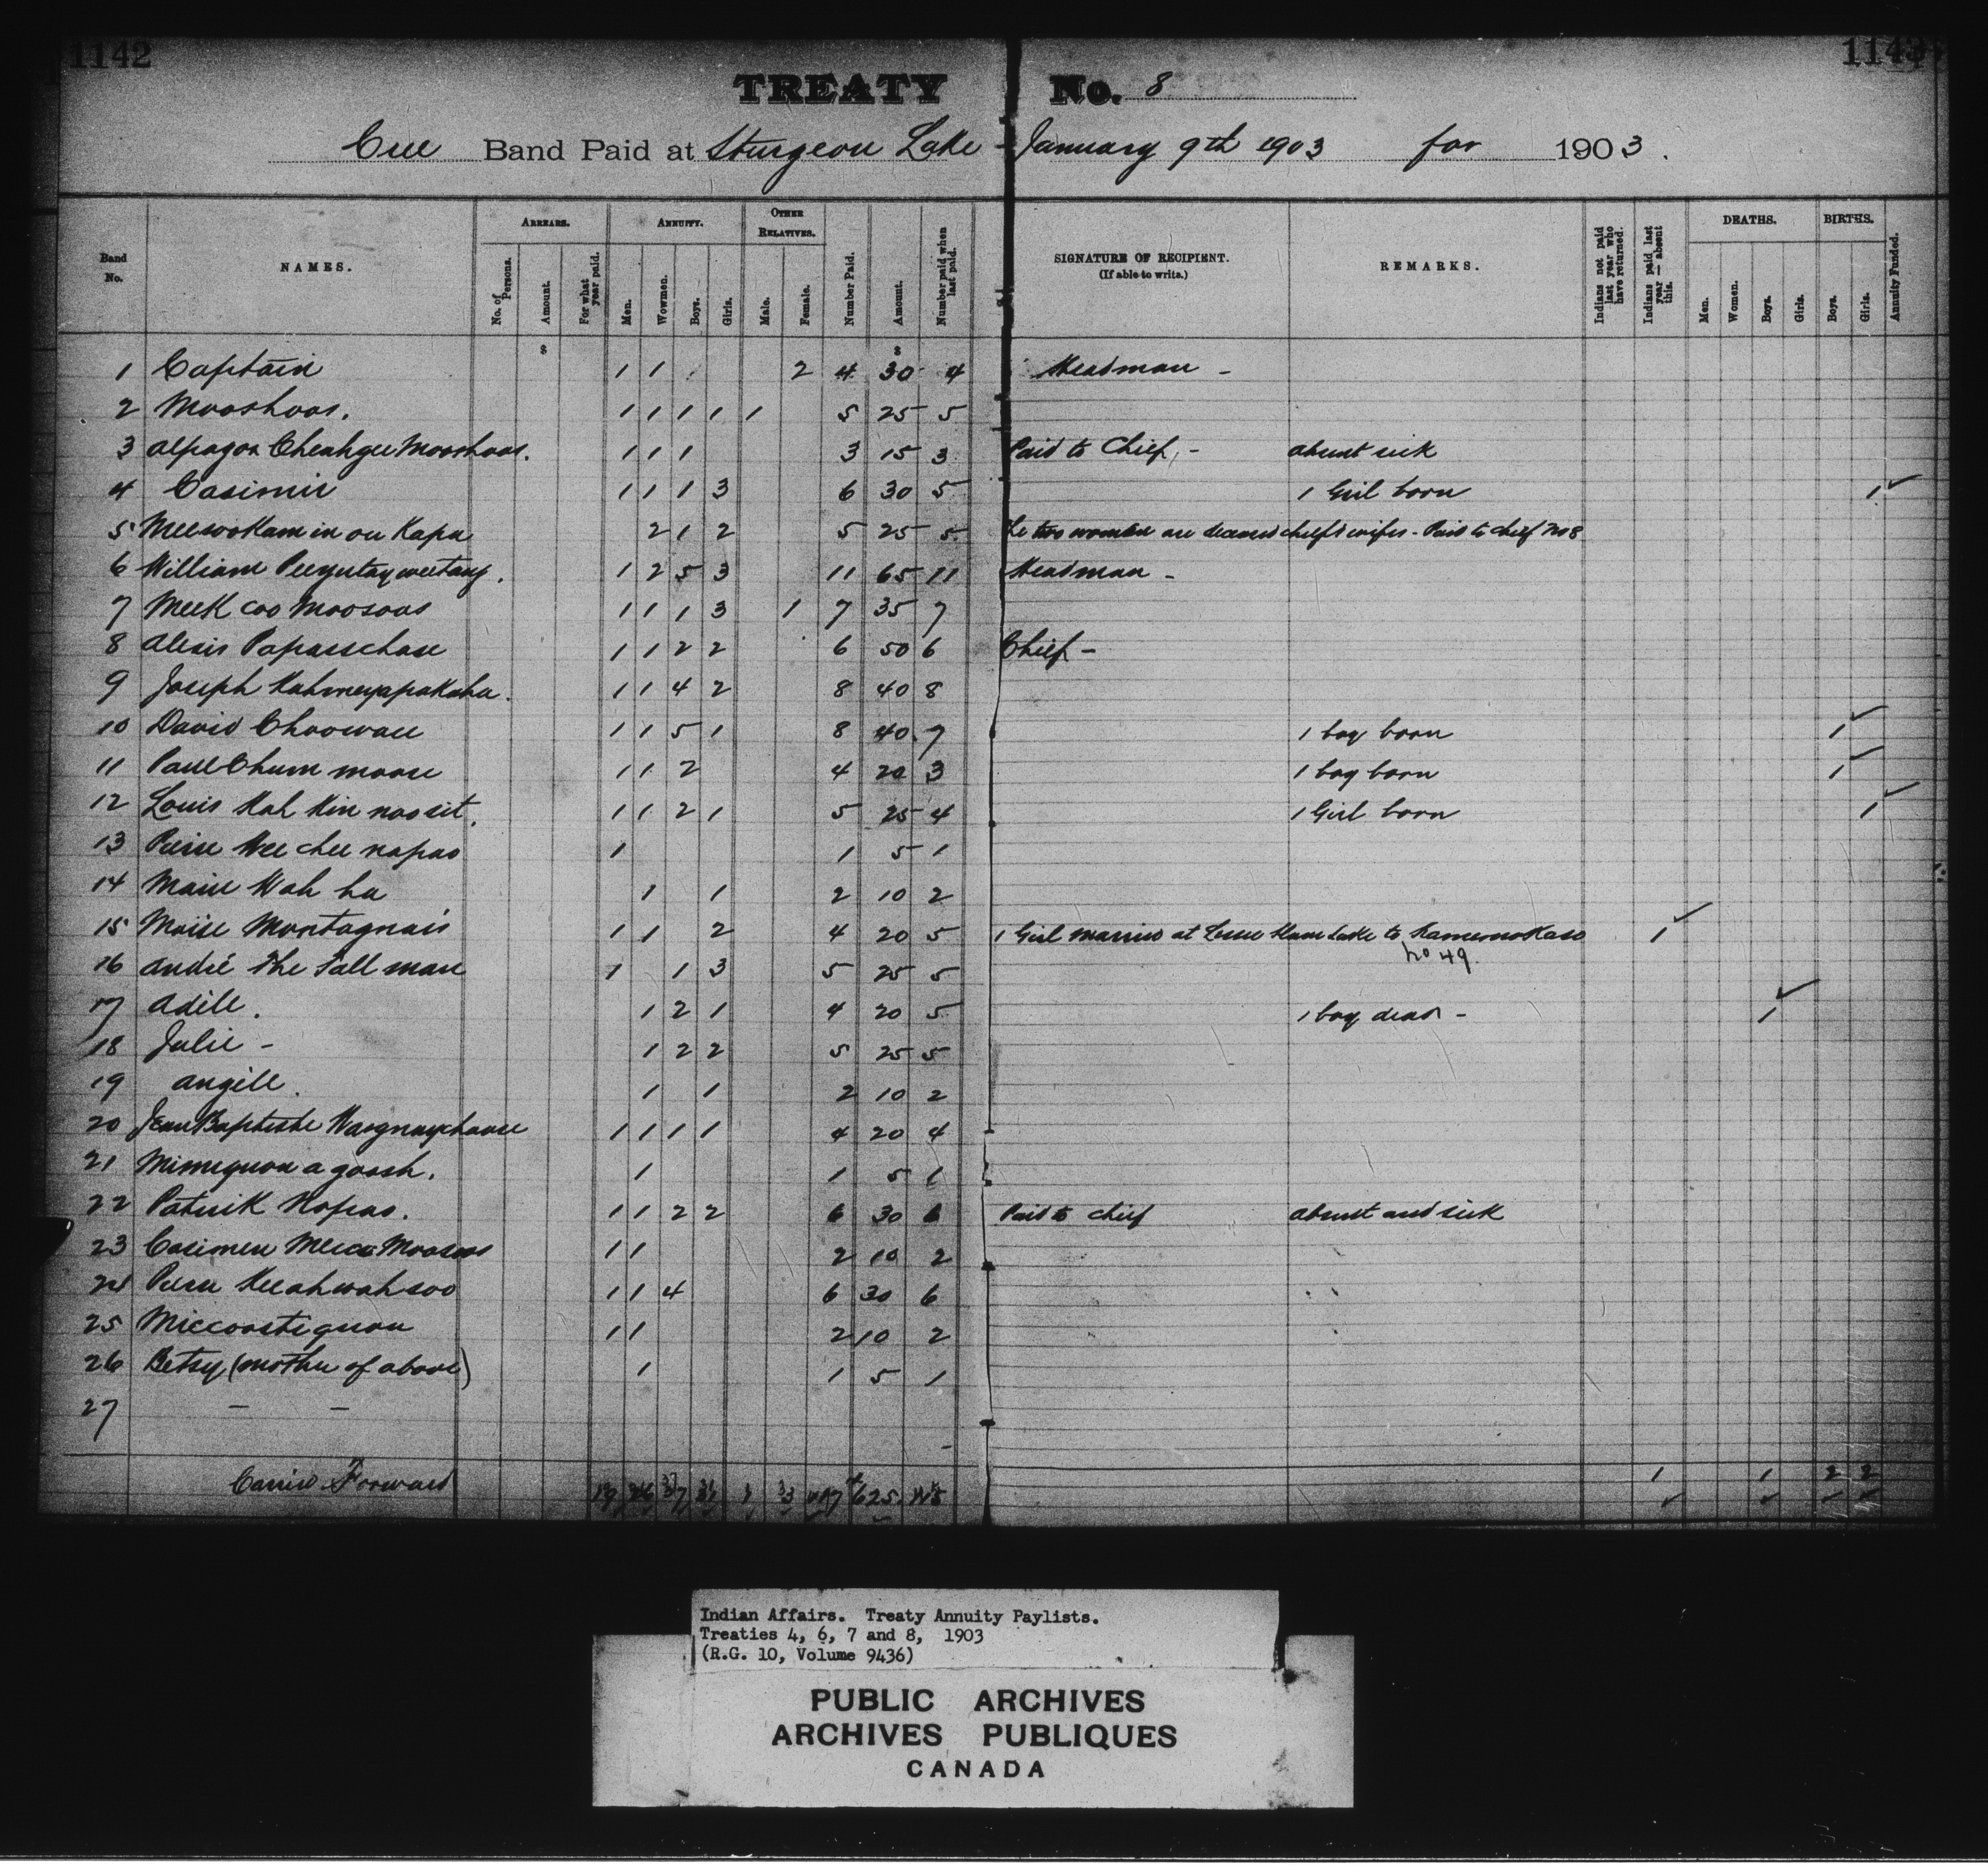 1142
1143
TREATY No. 8
Cree Band Paid at Sturgeon Lake - January 9th 1903 for 1903.
Band No.
NAMES.
ARREARS.
No. of Persons.
Amount.
For what year paid.
ANNUITY.
Men.
Wowmen.
Boys.
Girls.
OTHER RELATIVES.
Male.
Female.
Number Paid.
Amount.
Number paid when last paid.
SIGNATURE OF RECIPIENT. (If able to write.)
REMARKS.
Indians not paid last year who have returned.
Indians paid last year — absent this.
DEATHS.
Men.
Women.
Boys.
Girls.
BIRTHS.
Boys.
Girls.
Annuity Funded.
$ $
1 Captain 1 1 2 4 30 4 Headman -
2 Mooshoos. 1 1 1 1 1 5 25 5
3 Alpagon Cheahgee Mooshoos. 1 1 1 3 15 3 Paid to Chief, - absent sick
4 Casimir 1 1 1 3 6 30 5 1 Girl born 1 ✓
5 Meesookam in ou Kapu 2 1 2 5 25 5 The two women are deceased chief's wifes - Paid to chief No 8
6 William Peeyutayweetang. 1 2 5 3 11 65 11 Headman -
7 Meek coo Moosoos 1 1 1 3 1 7 35 7
8 Alexis Papasschase 1 1 2 2 6 50 6 Chief -
9 Joseph Kahmeyapukahu. 1 1 4 2 8 40 8
10 David Choowan 1 1 5 1 8 40. 7 1 boy born 1 ✓
11 Paul Chum moose 1 1 2 4 20 3 1 boy born 1 ✓
12 Louis Kah Kin noo sit. 1 1 2 1 5 25 4 1 Girl born 1 ✓
13 Pierre Wee chee napao 1 1 5 1
14 Marie Wah hu 1 1 2 10 2
15 Moïse Montagnais 1 1 2 4 20 5 1 Girl married at Lesser Slave Lake to Kamemokaso 1 ✓
No 49.
16 André The Tall man 1 1 3 5 25 5
17 Adile. 1 2 1 4 20 5 1 boy dead - 1 ✓
18 Julie - 1 2 2 5 25 5
19 Angile. 1 1 2 10 2
20 Jean Baptiste Waognaychouse 1 1 1 1 4 20 4
21 Mimiquon a goosh. 1 1 5 1
22 Patrick Napao. 1 1 2 2 6 30 6 Paid to chief absent and sick
23 Casimer Meeco Moosoos 1 1 2 10 2
24 Pierre Keeahwahsoo 1 1 4 6 30 6
25 Miccoostiquon 1 1 2 10 2
26 Betsy (mother of above) 1 1 5 1
27 - -
Carried Forward 19 26 37 31 1 3 117 625 1 1 2 2
✓ ✓ ✓ ✓
Indian Affairs. Treaty Annuity Paylists.
Treaties 4, 6, 7 and 8, 1903
(R.G. 10, Volume 9436)
PUBLIC ARCHIVES
ARCHIVES PUBLIQUES
CANADA